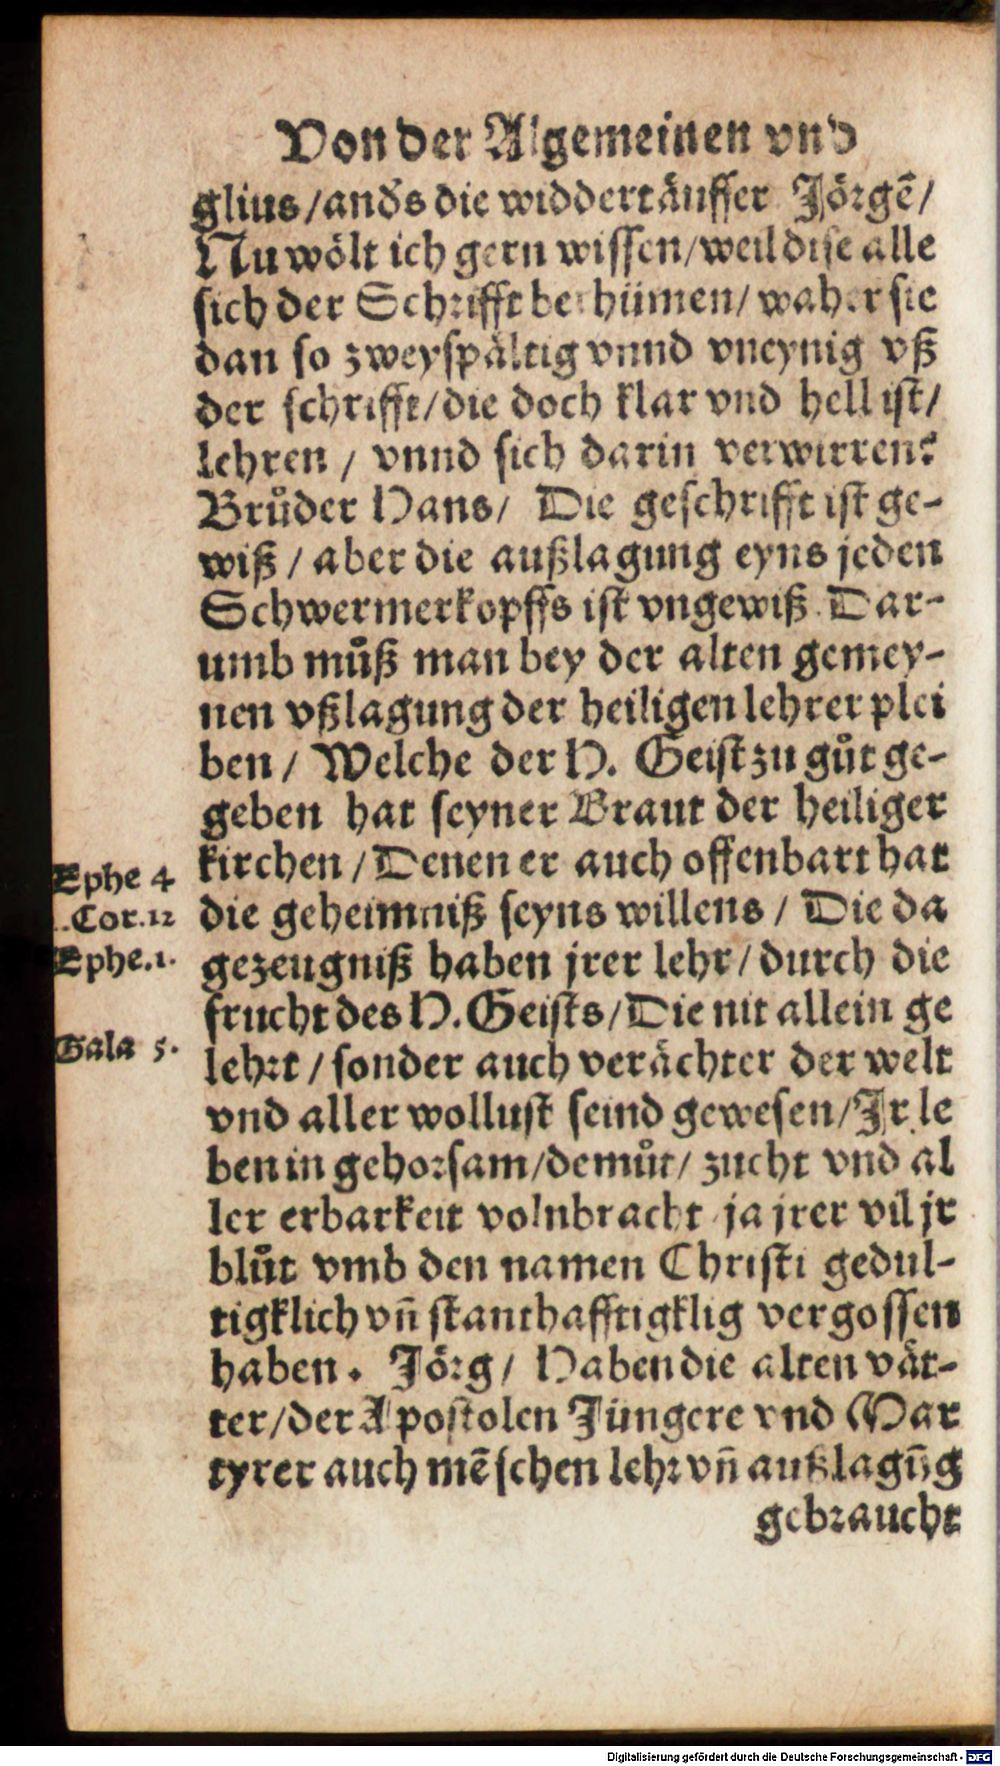 Von der Algemeinen vnd
glius/anďs die widdertäuffer Jörgẽ/
Nu wölt ich gern wissen/weil dise alle
sich der Schrifft berhümen/ waher sie
dan so zweyspältig vnnd vneynig vß
der schrifft/die doch klar vnd hell ist/
lehren / vnnd sich darin verwirren?
Brůder Hans/ Die geschrifft ist ge-
wiß / aber die außlagung eyns jeden
Schwermerkopffs ist vngewiß. Dar-
umb můß man bey der alten gemey-
nen vßlagung der heiligen lehrer plei
ben / Welche der H. Geist zu gůt ge-
geben hat seyner Braut der heiliger
kirchen / Denen er auch offenbart hat
Ephe 4
die geheimniß seyns willens / Die da
.Cor.12
gezeugniß haben jrer lehr/durch die
Ephe.1.
frucht des H. Geists/Die nit allein ge
lehrt / sonder auch verächter der welt
Gala 5.
vnd aller wollust seind gewesen/Jr le
ben in gehorsam/demůt/ zucht vnd al
ler erbarkeit volnbracht ja jrer vil jr
blůt vmb den namen Christi gedul-
tigklich vñ stanthafftigklig vergossen
haben. Jörg/ Haben die alten vät-
ter/der Apostolen Jüngere vnd Mar
tyrer auch mẽschen lehr vñ außlagũg
gebraucht
Digitalisierung gefördert durch die Deutsche Forschungsgemeinschaft - DFG